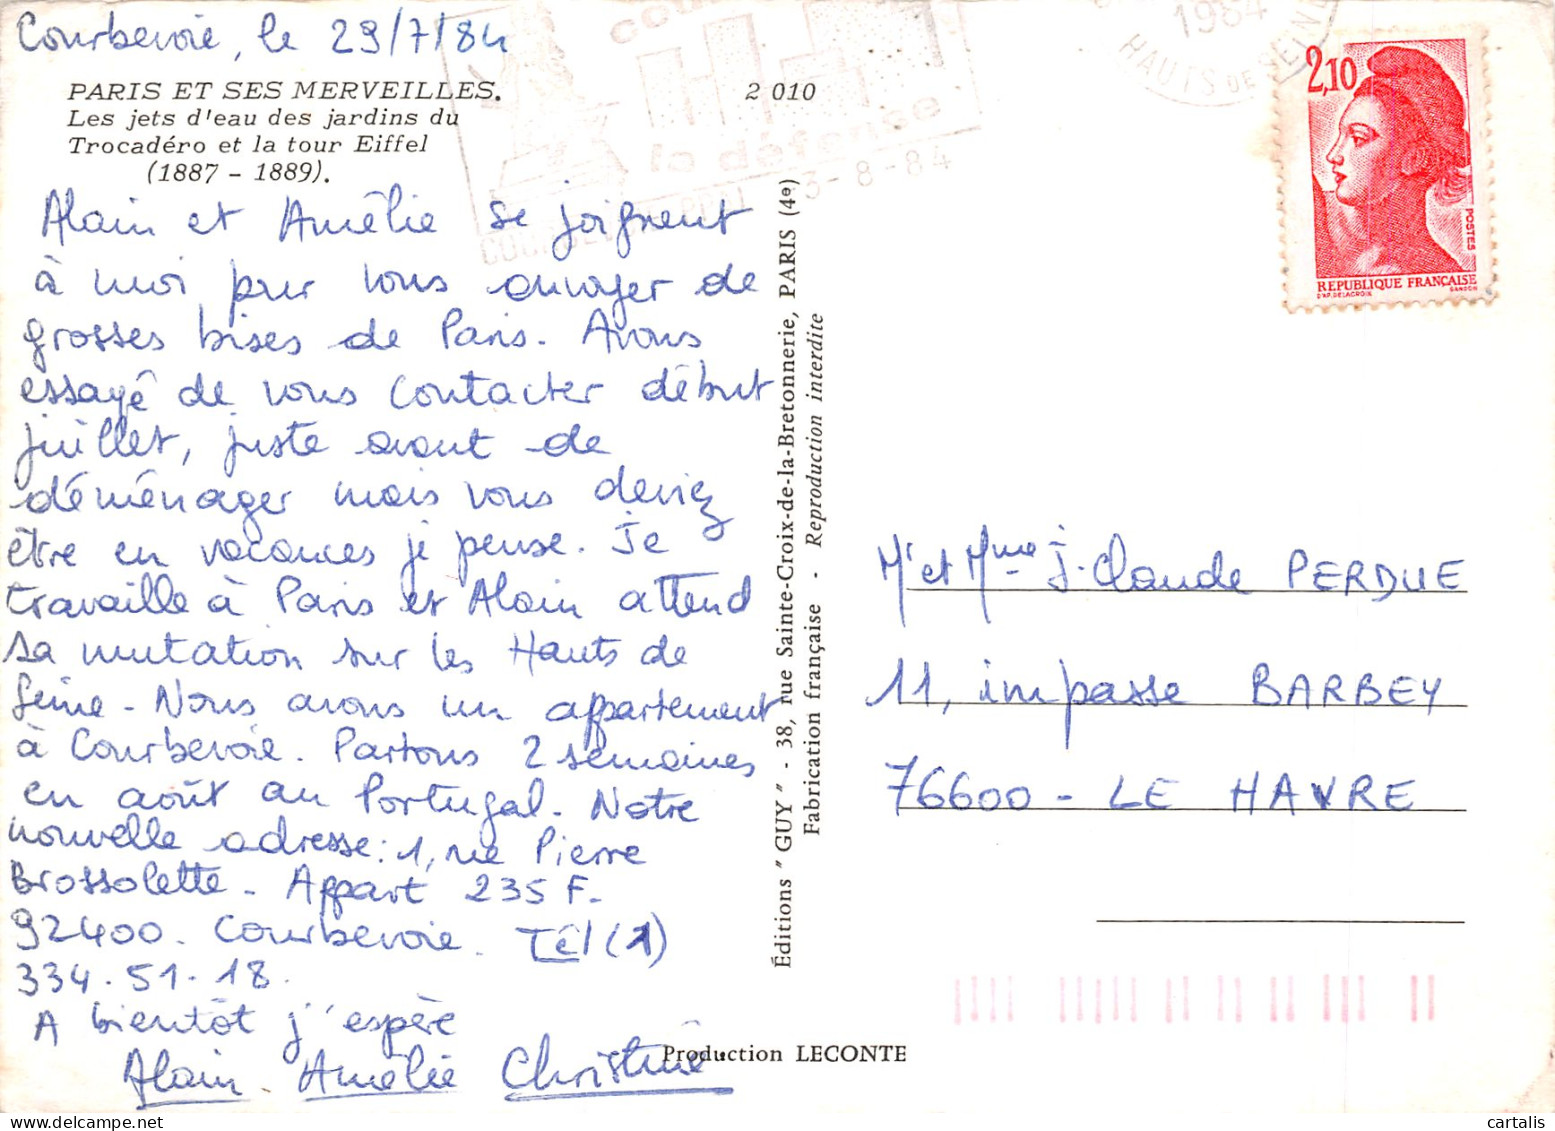 Courbevoie, le 29/7/84
PARIS ET SES MERVEILLES.
Les jets d'eau des jardins du
Trocadéro et la tour Eiffel
(1887 - 1889).
2 010
Alain et Amélie se joignent
à moi pour vous envoyer de
grosses bises de Paris. Avons
essayé de vous contacter début
juillet, juste avant de
déménager mais vous deviez
être en vacances je pense. Je
travaille à Paris et Alain attend
sa mutation sur les Hauts de
Seine - Nous avons un appartement
à Courbevoie. Partons 2 semaines
en août au Portugal. Notre
nouvelle adresse : 1, rue Pierre
Brossolette - Appart 235 F.
92400. Courbevoie. Tél (1)
334.51.18.
A bientôt j'espère
Alain. Amélie Christine
la défense
3-8-84
1984
HAUTS DE SEINE
2,10
POSTES
REPUBLIQUE FRANÇAISE
D'AP. DELACROIX GANDON
Éditions "GUY" - 38, rue Sainte-Croix-de-la-Bretonnerie, PARIS (4e)
Fabrication française - Reproduction interdite
Mr et Mme J.Claude PERDUE
11, impasse BARBEY
76600 - LE HAVRE
Production LECONTE
cartalis